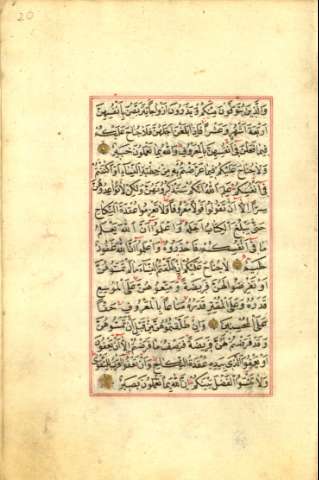 20
وَالَّذِينَ يُتَوَفَّوْنَ مِنْكُمْ وَيَذَرُونَ أَزْوَاجًا يَتَرَبَّصْنَ بِأَنْفُسِهِنَّ
أَرْبَعَةَ أَشْهُرٍ وَعَشْرًا فَإِذَا بَلَغْنَ أَجَلَهُنَّ فَلَا جُنَاحَ عَلَيْكُمْ
فِيمَا فَعَلْنَ فِي أَنْفُسِهِنَّ بِالْمَعْرُوفِ وَاللَّهُ بِمَا تَعْمَلُونَ خَبِيرٌ
وَلَا جُنَاحَ عَلَيْكُمْ فِيمَا عَرَّضْتُمْ بِهِ مِنْ خِطْبَةِ النِّسَاءِ أَوْ أَكْنَنْتُمْ
فِي أَنْفُسِكُمْ عَلِمَ اللَّهُ أَنَّكُمْ سَتَذْكُرُونَهُنَّ وَلَكِنْ لَا تُوَاعِدُوهُنَّ
سِرًّا إِلَّا أَنْ تَقُولُوا قَوْلًا مَعْرُوفًا وَلَا تَعْزِمُوا عُقْدَةَ النِّكَاحِ
حَتَّى يَبْلُغَ الْكِتَابُ أَجَلَهُ وَاعْلَمُوا أَنَّ اللَّهَ يَعْلَمُ
مَا فِي أَنْفُسِكُمْ فَاحْذَرُوهُ وَاعْلَمُوا أَنَّ اللَّهَ غَفُورٌ
حَلِيمٌ لَا جُنَاحَ عَلَيْكُمْ إِنْ طَلَّقْتُمُ النِّسَاءَ مَا لَمْ تَمَسُّوهُنَّ
أَوْ تَفْرِضُوا لَهُنَّ فَرِيضَةً وَمَتِّعُوهُنَّ عَلَى الْمُوسِعِ
قَدَرُهُ وَعَلَى الْمُقْتِرِ قَدَرُهُ مَتَاعًا بِالْمَعْرُوفِ حَقًّا
عَلَى الْمُحْسِنِينَ وَإِنْ طَلَّقْتُمُوهُنَّ مِنْ قَبْلِ أَنْ تَمَسُّوهُنَّ
وَقَدْ فَرَضْتُمْ لَهُنَّ فَرِيضَةً فَنِصْفُ مَا فَرَضْتُمْ إِلَّا أَنْ يَعْفُونَ
أَوْ يَعْفُوَ الَّذِي بِيَدِهِ عُقْدَةُ النِّكَاحِ وَأَنْ تَعْفُوا أَقْرَبُ لِلتَّقْوَى
وَلَا تَنْسَوُا الْفَضْلَ بَيْنَكُمْ إِنَّ اللَّهَ بِمَا تَعْمَلُونَ بَصِيرٌ